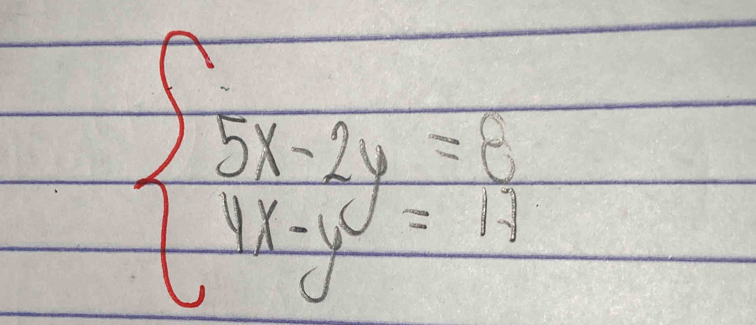 5x - 2y = 8
4x - y = 17